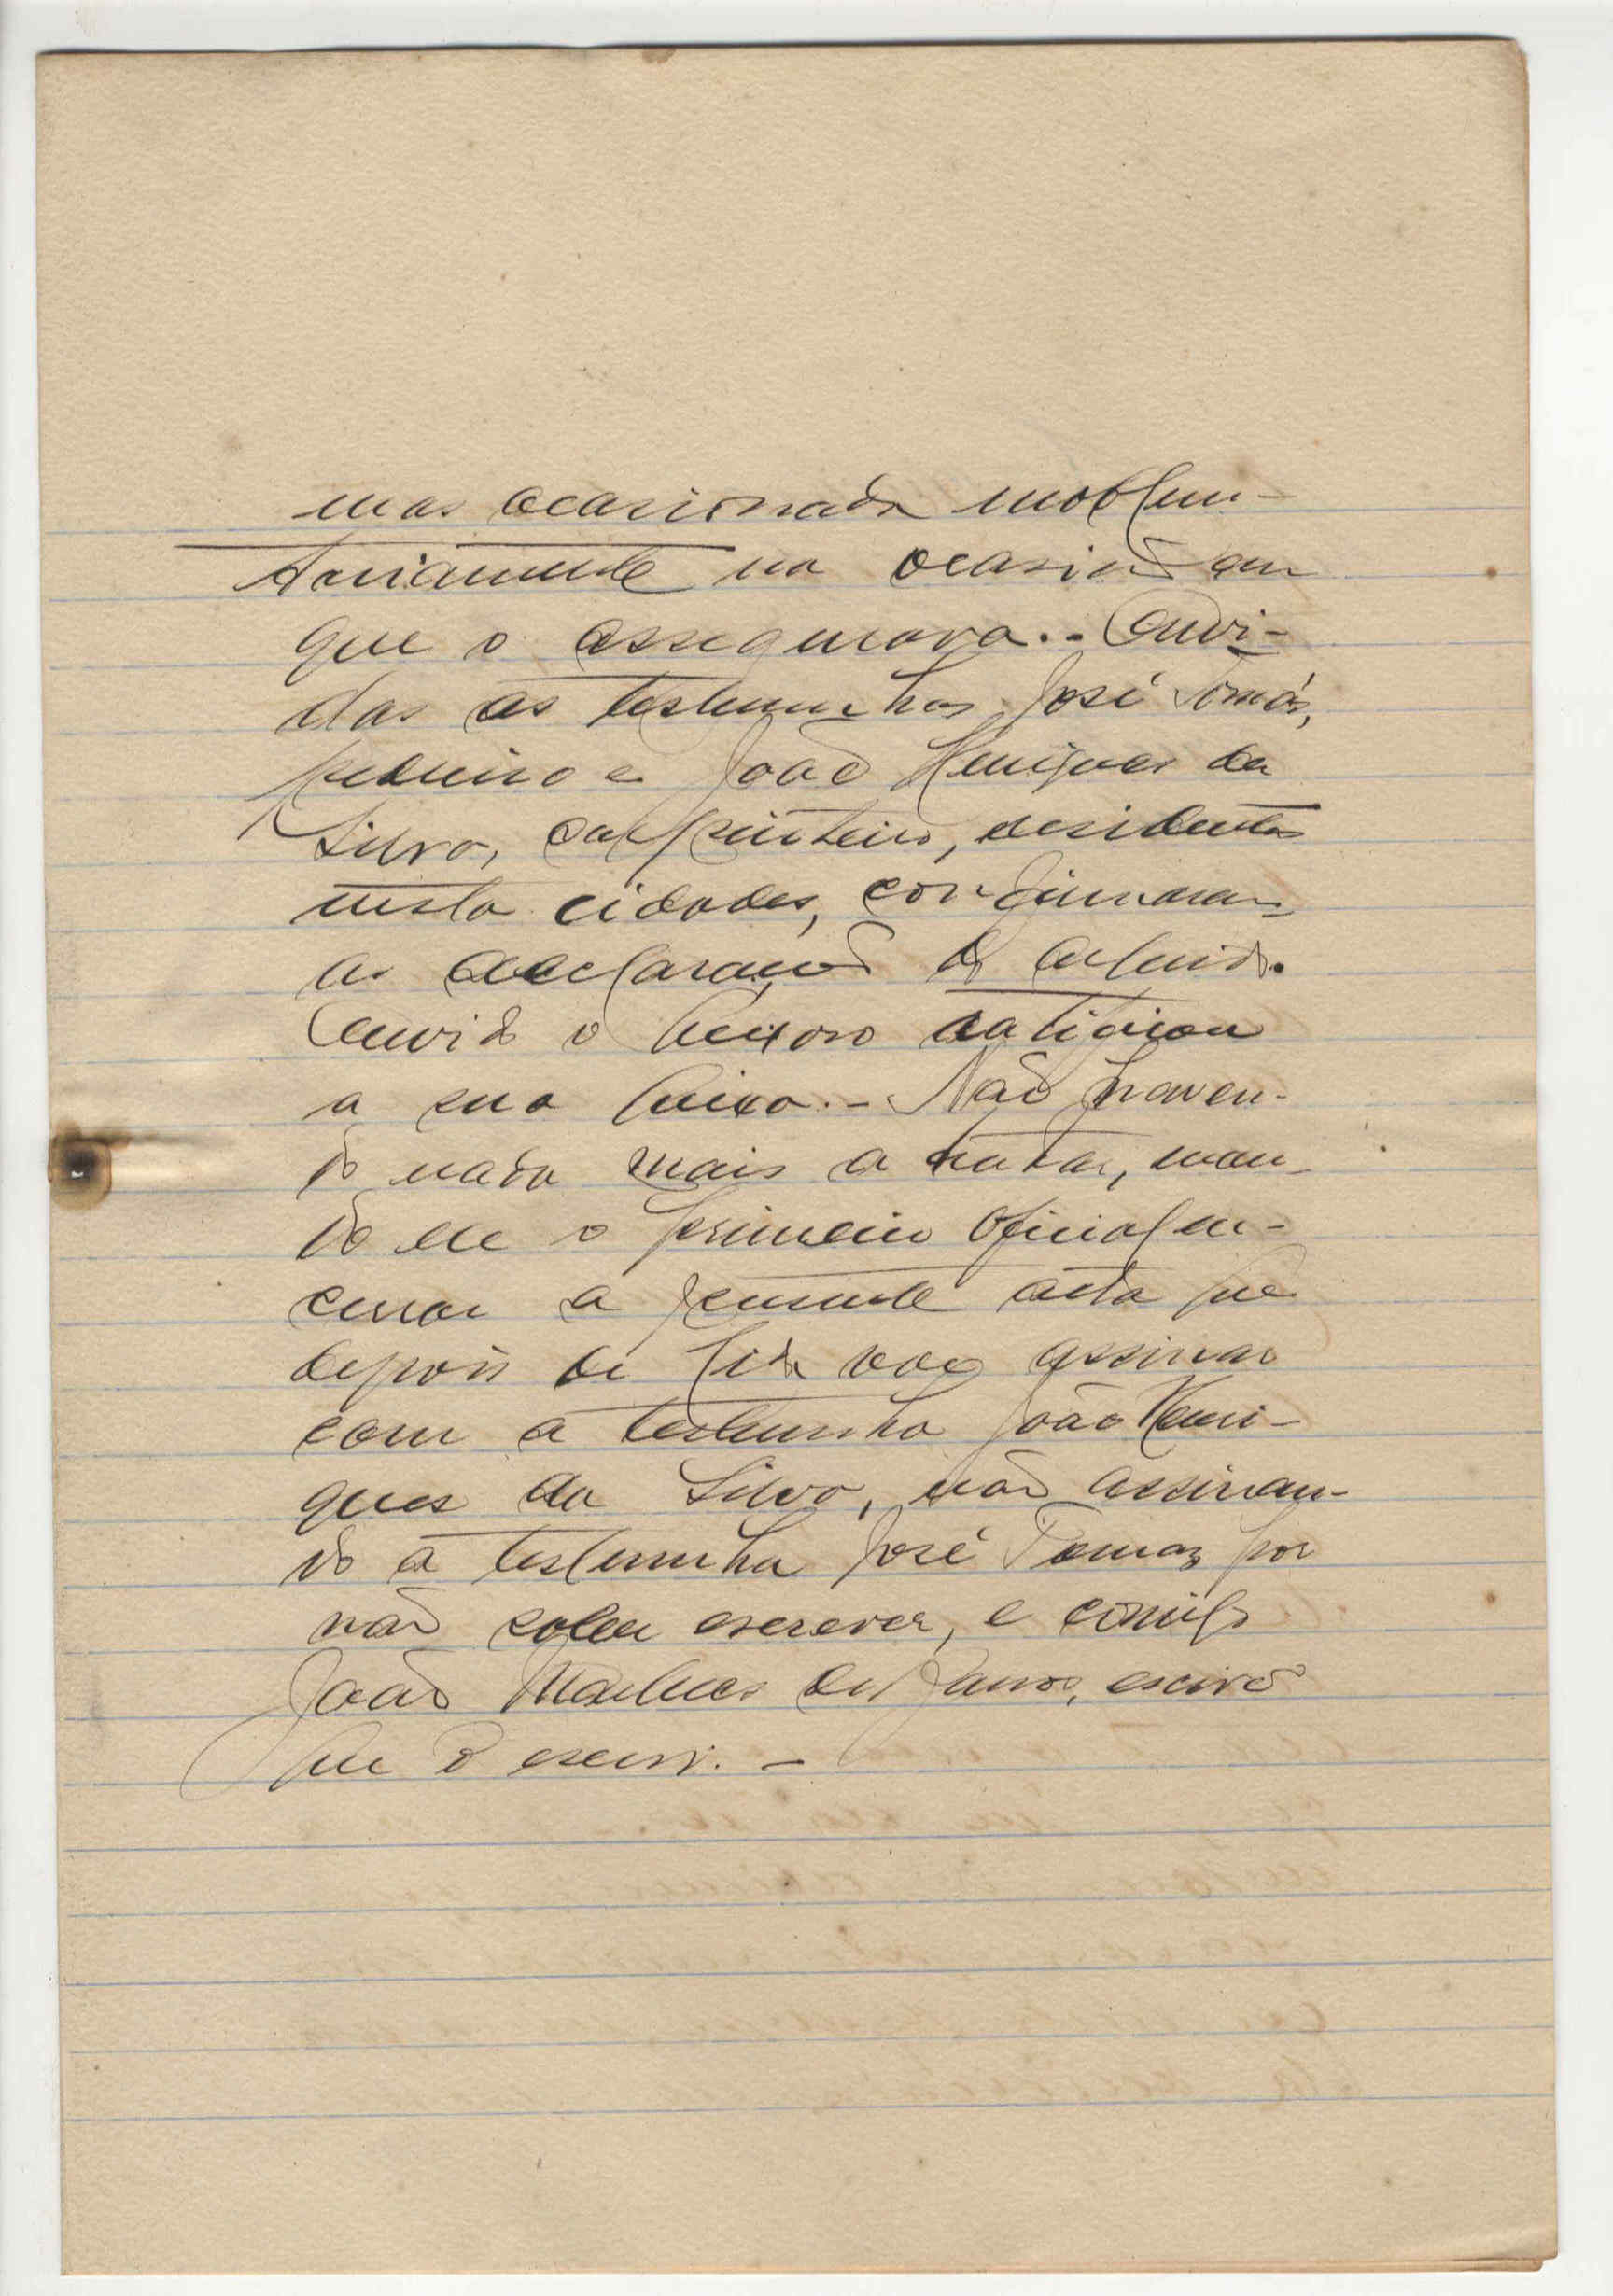 mas ocasionada involun-
tariamente na ocasião em
que o assegurava. - Ouvi-
das as testemunhas José Tomás,
pedreiro e João Henriques da
Silva, carpinteiro, residentes
nesta cidades, confirmaram
as declarações do arguido.
Ouvido o queixoso ratificou
a sua queixa. - Não haven-
do nada mais a tratar, man-
do ele o primeiro oficial en-
cerrar a presente acta que
depois de lida vae assinar
com a testemunha João Henri-
ques da Silva, não assinan-
do a testemunha José Tomaz por
não saber escrever, e comigo
João Martins escrivão
que o escrevi. -